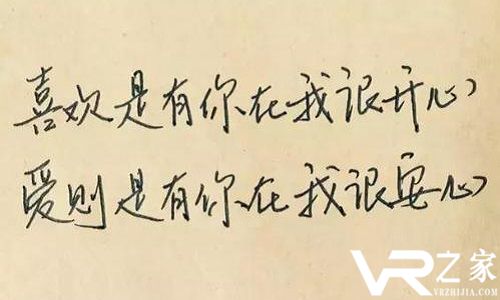 喜欢是有你在我很开心
爱则是有你在我很安心
VR之家
VRZHIJIA.COM